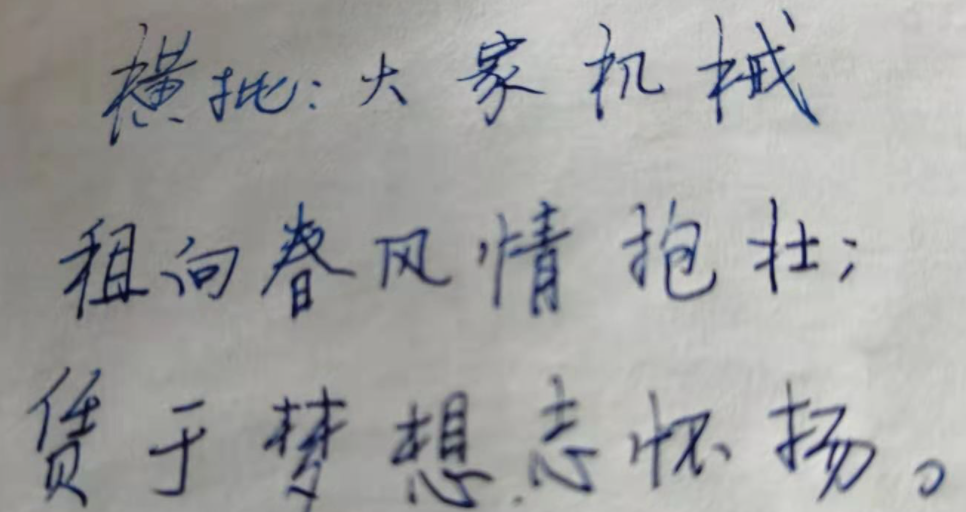 横批:大家机械
租向春风情抱壮;
赁于梦想志怀扬。